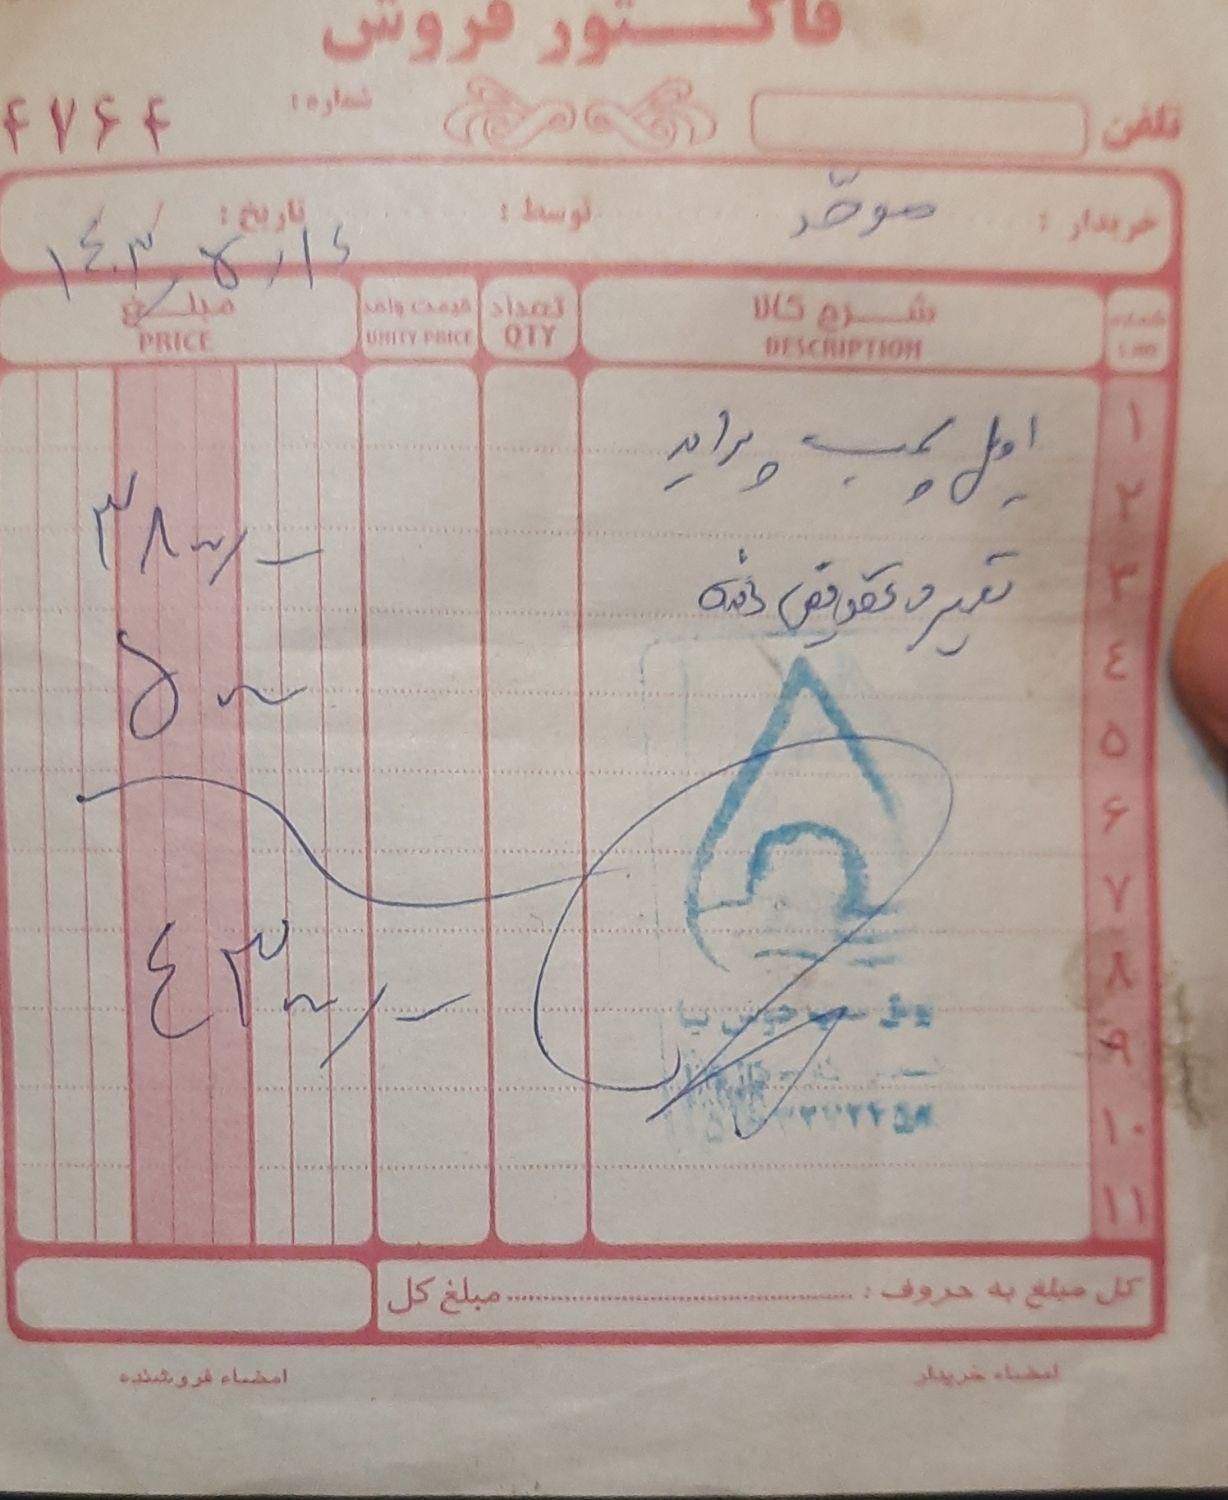 فاکتور فروش
تلفن
شماره : ۴۷۶۴
خریدار : موحّد توسط : تاریخ : ۱۴۰۳/۵/۱۶
شماره شرح کالا تعداد قیمت واحد مبلغ
DESCRIPTION QTY UNITY PRICE PRICE
۱ اویل پمپ پراید
۲ ۳۸۰۰/-
۳ تعمیر و تعویض شده
۴ ۵۰۰
۵
۶
۷
۸ ۴۳۰۰/-
۹
۱۰
۱۱
کل مبلغ به حروف : مبلغ کل
امضاء خریدار امضاء فروشنده